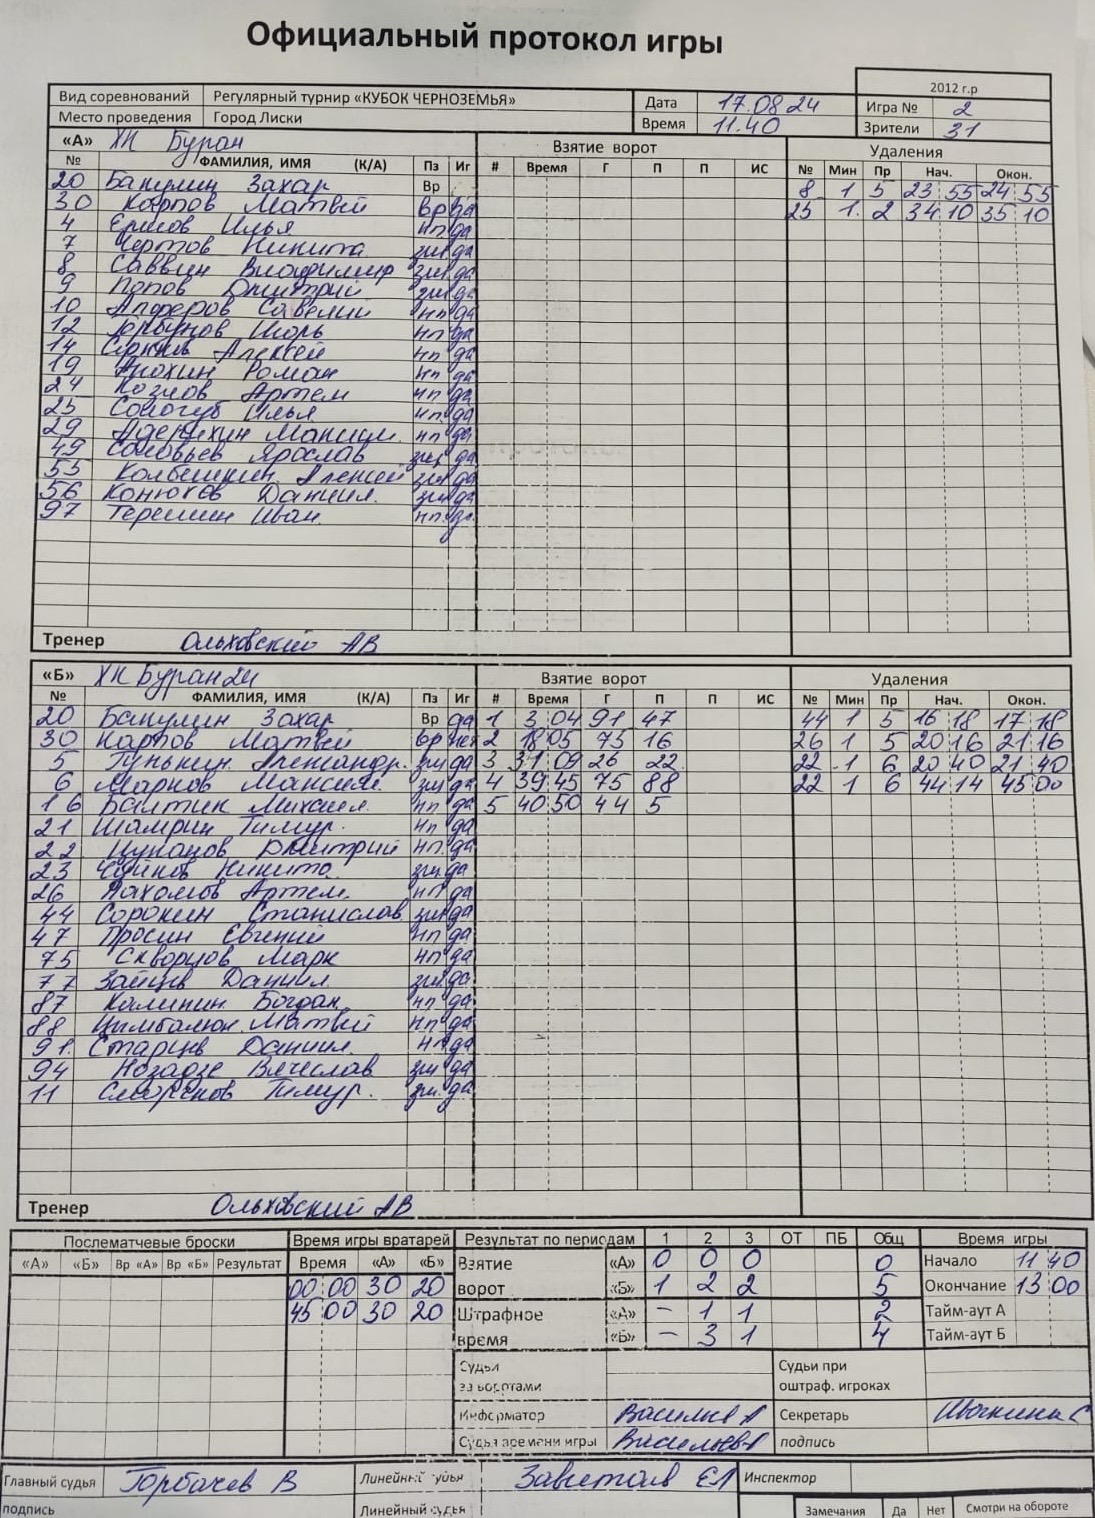 Официальный протокол игры
2012 г.р
Вид соревнований Регулярный турнир «КУБОК ЧЕРНОЗЕМЬЯ» Дата 17.08.24 Игра № 2
Место проведения Город Лиски Время 11.40 Зрители 31
«А» ХК Буран Взятие ворот Удаления
№ ФАМИЛИЯ, ИМЯ (К/А) Пз Иг # Время Г П П ИС № Мин Пр Нач. Окон.
20 Бакулин Захар Вр 8 1 5 23 55 24 55
30 Карпов Матвей Вр да 25 1 2 34 10 35 10
4 Илья нп да
7 Чертов Никита защ да
8 Саввин Владимир защ да
9 Попов Дмитрий защ да
10 Алферов Савелий нп да
12 Горбунов Игорь нп да
14 Алексей нп да
19 Анохин Роман нп да
24 Козлов Артем нп да
25 Сологуб Илья нп да
29 Максим нп да
49 Соловьев Ярослав защ да
55 Колбешкин Алексей защ да
56 Конюхов Даниил защ да
97 Терешин Иван нп да
Тренер Ольховский АВ
«Б» ХК Буран 24 Взятие ворот Удаления
№ ФАМИЛИЯ, ИМЯ (К/А) Пз Иг # Время Г П П ИС № Мин Пр Нач. Окон.
20 Бакулин Захар Вр да 1 3 04 91 47 44 1 5 16 18 17 18
30 Карпов Матвей Вр нет 2 18 05 75 16 26 1 5 20 16 21 16
5 Гунькин Александр защ да 3 31 09 26 22 22 1 6 20 40 21 40
6 Марков Максим защ да 4 39 45 75 88 22 1 6 44 14 45 00
16 Балтик Михаил нп да 5 40 50 44 5
21 Шамрин Тимур нп да
22 Цуканов Дмитрий нп да
23 Чуйков Никита защ да
26 Пахомов Артем нп да
44 Сорокин Станислав защ да
47 Просин Евгений нп да
75 Скворцов Марк нп да
77 Зайцев Даниил защ да
87 Калинин Богдан нп да
88 Цымбалюк Матвей нп да
91 Старцев Даниил нп да
94 Нозадзе Вячеслав защ да
11 Тимур защ да
Тренер Ольховский АВ
Послематчевые броски Время игры вратарей Результат по периодам 1 2 3 ОТ ПБ Общ Время игры
«А» «Б» Вр «А» Вр «Б» Результат Время «А» «Б» Взятие «А» 0 0 0 0 Начало 11 40
00 00 30 20 ворот «Б» 1 2 2 5 Окончание 13 00
45 00 30 20 Штрафное «А» – 1 1 2 Тайм-аут А
время «Б» – 3 1 4 Тайм-аут Б
Судья Судьи при
за воротами оштраф. игроках
Информатор Васильев А Секретарь
Судья времени игры Васильев А подпись
Главный судья Горбачев В Линейный судья Инспектор
подпись Линейный судья Замечания Да Нет Смотри на обороте